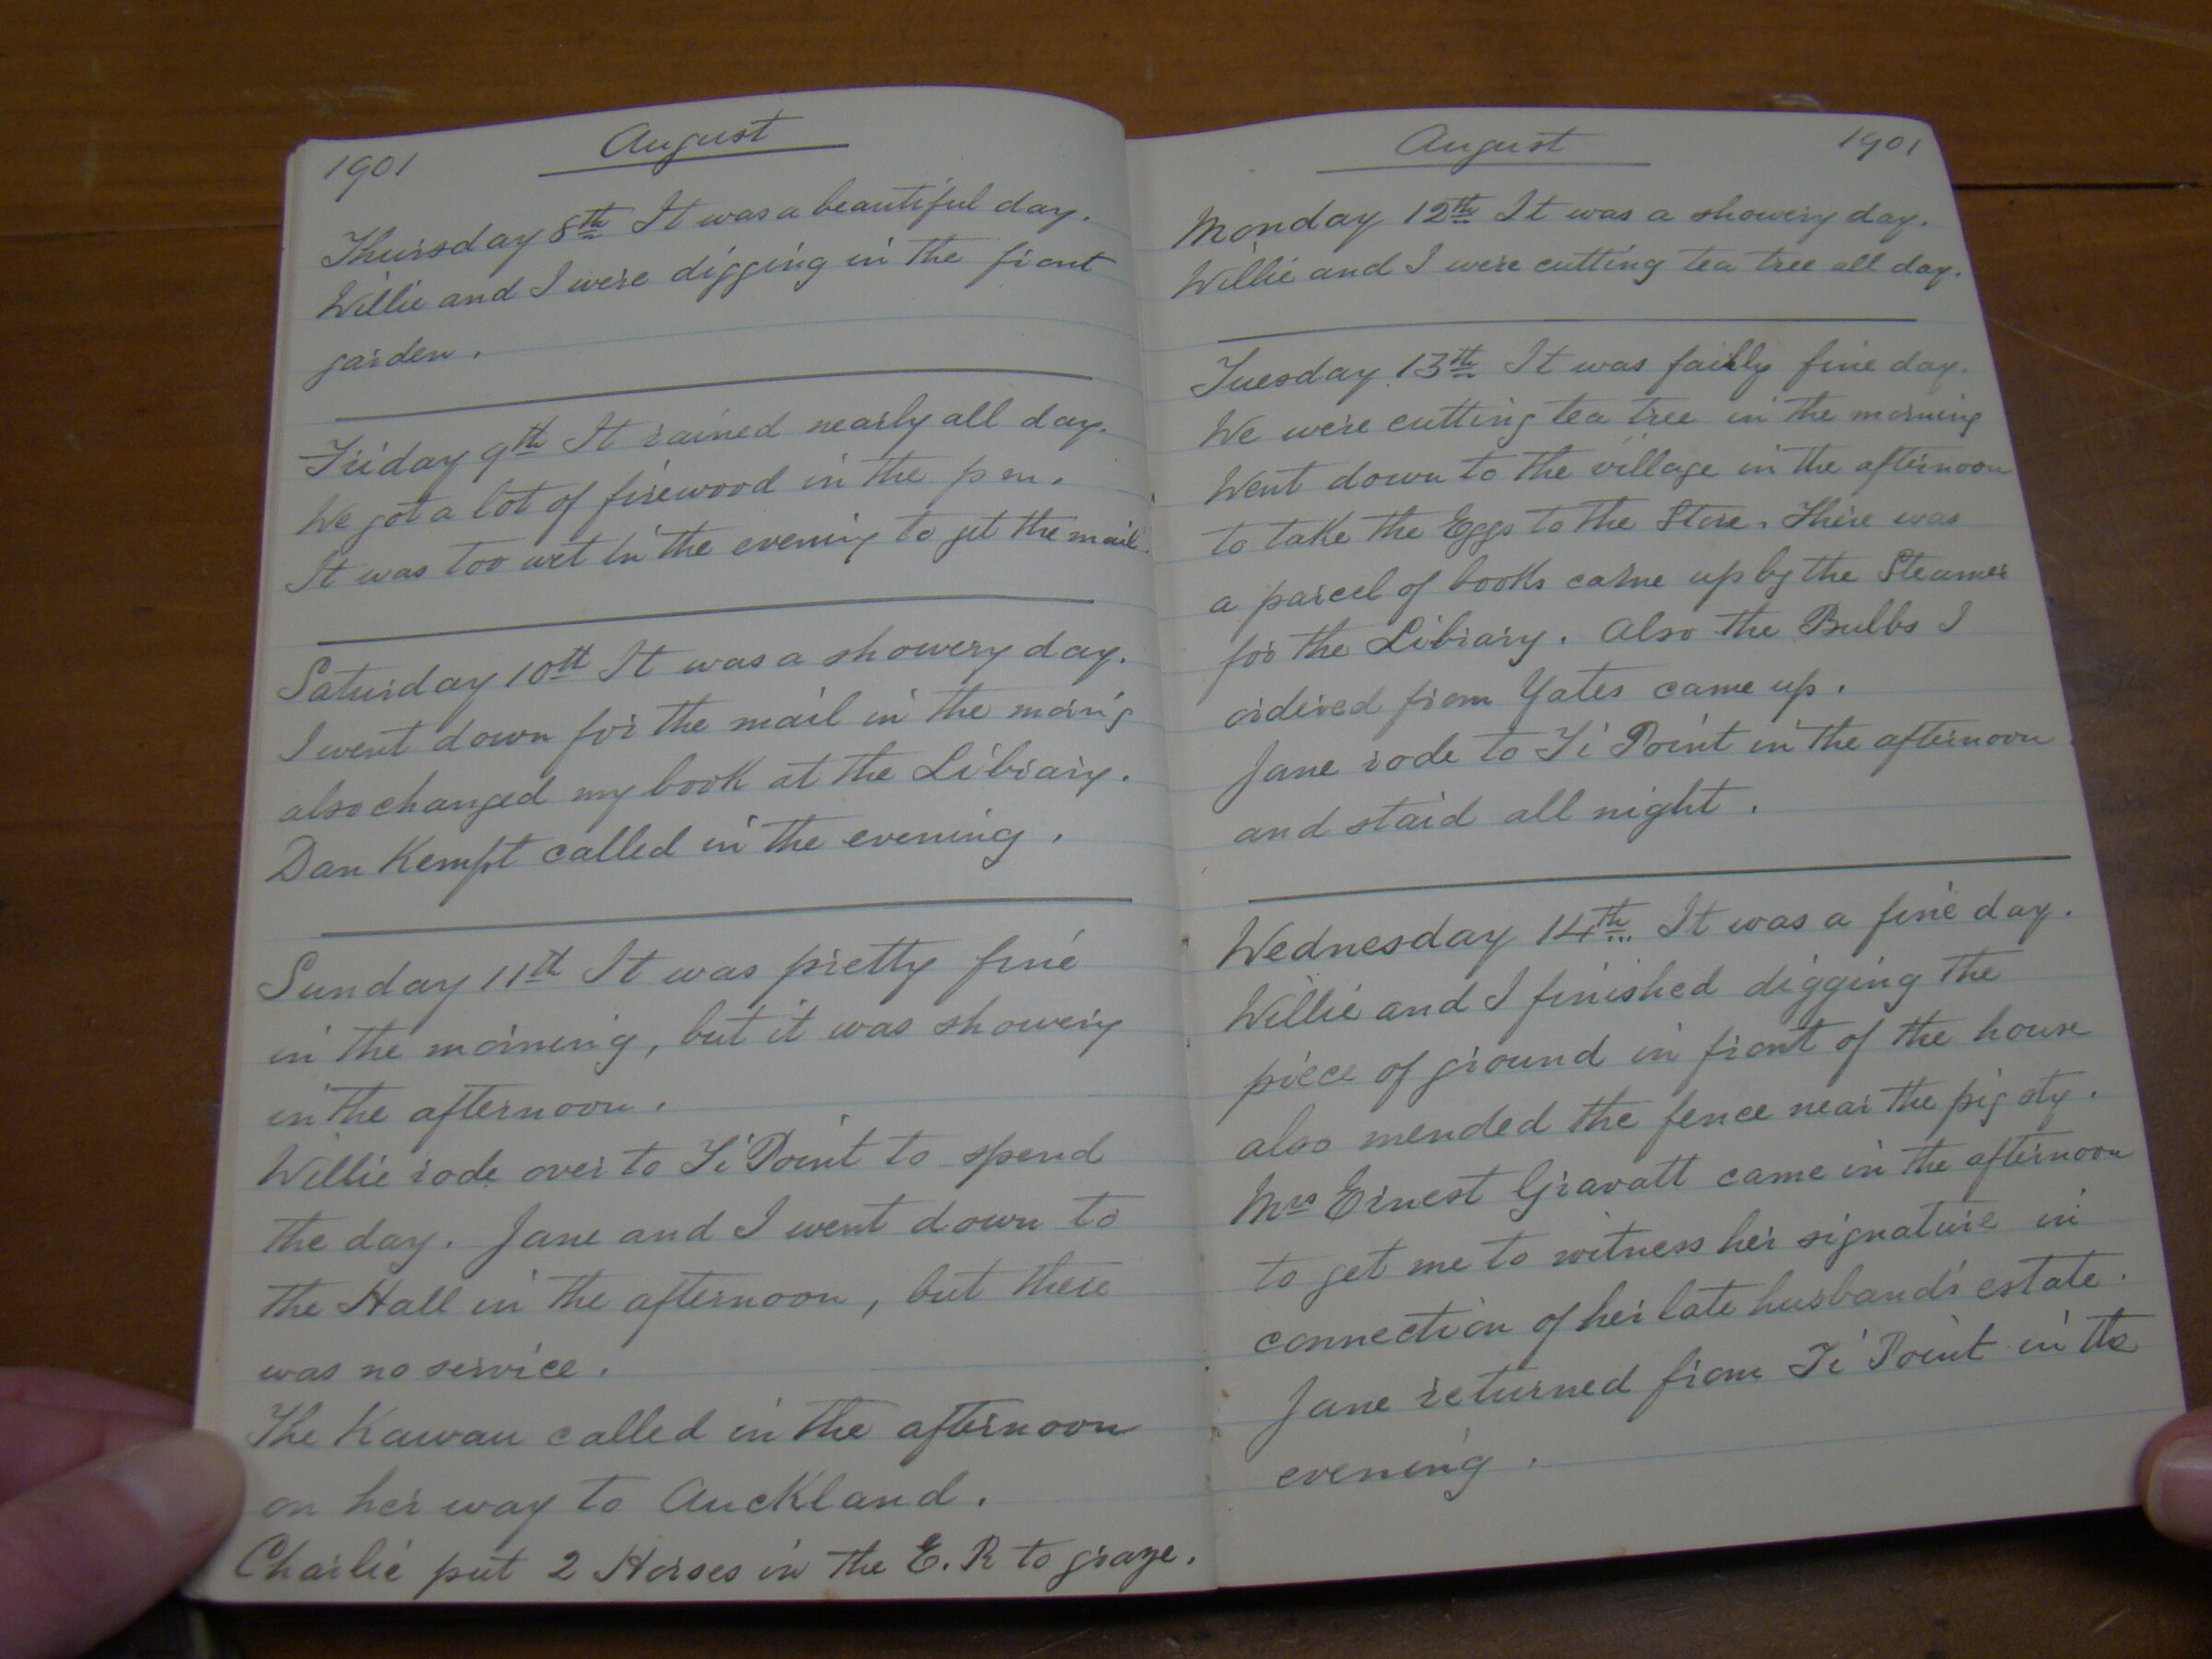 1901
August
Thursday 8th It was a beautiful day.
Willie and I were digging in the front
garden.
Friday 9th It rained nearly all day.
We got a lot of firewood in the p m.
It was too wet in the evening to get the mail.
Saturday 10th It was a showery day.
I went down for the mail in the morng
also changed my book at the Library.
Dan Kempt called in the evening.
Sunday 11th It was pretty fine
in the morning, but it was showery
in the afternoon.
Willie rode over to Ti Point to spend
the day. Jane and I went down to
the Hall in the afternoon, but there
was no service.
The Kawau called in the afternoon
on her way to Auckland.
Charlie put 2 Horses in the E. R to graze.
August
1901
Monday 12th It was a showery day.
Willie and I were cutting tea tree all day.
Tuesday 13th It was fairly fine day.
We were cutting tea tree in the morning
Went down to the village in the afternoon
to take the Eggs to the Store. There was
a parcel of books came up by the Steamer
for the Library. Also the Bulbs I
ordered from Yates came up.
Jane rode to Ti Point in the afternoon
and staid all night.
Wednesday 14th It was a fine day.
Willie and I finished digging the
piece of ground in front of the house
also mended the fence near the pig sty.
Mrs Ernest Gravatt came in the afternoon
to get me to witness her signature in
connection of her late husband's estate.
Jane returned from Ti Point in the
evening.